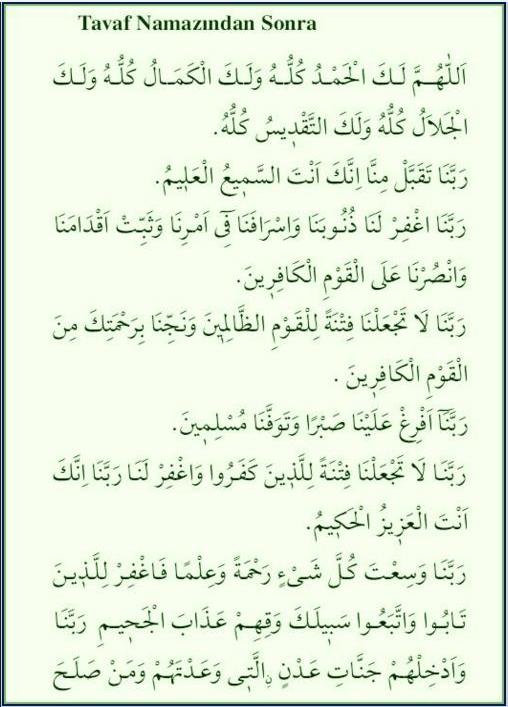 Tavaf Namazından Sonra
اَللّٰهُمَّ لَكَ الْحَمْدُ كُلُّهُ وَلَكَ الْكَمَالُ كُلُّهُ وَلَكَ
الْجَلاَلُ كُلُّهُ وَلَكَ التَّقْدِيسُ كُلُّهُ.
رَبَّنَا تَقَبَّلْ مِنَّا اِنَّكَ اَنْتَ السَّمِيعُ الْعَلِيمُ.
رَبَّنَا اغْفِرْ لَنَا ذُنُوبَنَا وَاِسْرَافَنَا فِٓى اَمْرِنَا وَثَبِّتْ اَقْدَامَنَا
وَانْصُرْنَا عَلَى الْقَوْمِ الْكَافِرِينَ.
رَبَّنَا لَا تَجْعَلْنَا فِتْنَةً لِلْقَوْمِ الظَّالِمِينَ وَنَجِّنَا بِرَحْمَتِكَ مِنَ
الْقَوْمِ الْكَافِرِينَ .
رَبَّنَٓا اَفْرِغْ عَلَيْنَا صَبْرًا وَتَوَفَّنَا مُسْلِمِينَ.
رَبَّنَا لَا تَجْعَلْنَا فِتْنَةً لِلَّذِينَ كَفَرُوا وَاغْفِرْ لَنَا رَبَّنَا اِنَّكَ
اَنْتَ الْعَزِيزُ الْحَكِيمُ.
رَبَّنَا وَسِعْتَ كُلَّ شَىْءٍ رَحْمَةً وَعِلْمًا فَاغْفِرْ لِلَّذِينَ
تَابُوا وَاتَّبَعُوا سَبِيلَكَ وَقِهِمْ عَذَابَ الْجَحِيمِ رَبَّنَا
وَاَدْخِلْهُمْ جَنَّاتِ عَدْنٍ ۨالَّتِى وَعَدْتَهُمْ وَمَنْ صَلَحَ